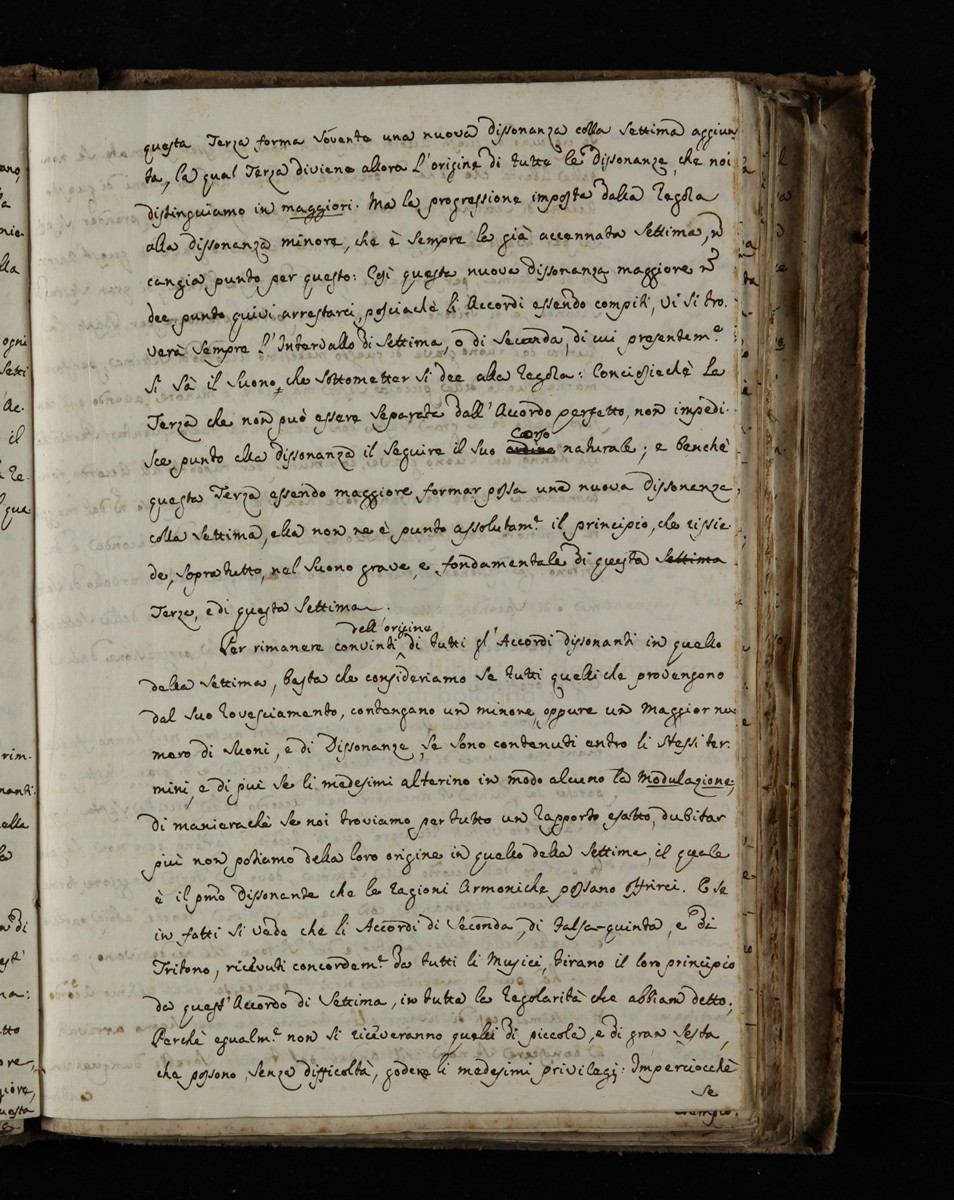 questa Terza forma sovente una nuova dissonanza colla Settima aggiun
ta, la qual Terza diviene allora l'origine di tutte le dissonanze, che noi
distinguiamo in maggiori. Ma la progressione imposta dalla Regola
alla dissonanza minore, che è sempre la già accennata Settima, ñ
cangia punto per questo: Così questa nuova dissonanza maggiore ñ
dee punto quivi arrestarci, posciachè li Accordi essendo compiti, vi si tro-
verà sempre l'Intervallo di Settima, o di Seconda, di cui presentem.e
si sà il Suono, che sottometter si dee alla Regola: Conciosiachè la
Terza che non può essere separata dall'Accordo perfetto, non impedi-
sce punto alla dissonanza il seguire il suo ordine Corso naturale; e benchè
questa Terza essendo maggiore formar possa una nuova dissonanza,
colla Settima, ella non ne è punto assolutam.e il principio, che risie
de, sopra tutto, nel Suono grave, e fondamentale di questa Settima
Terza, e di questa Settima.
dell'origine
Per rimanere convinti di tutti gl'Accordi dissonanti in quello
della Settima, basta che consideriamo se tutti quelli che provengono
dal suo rovesciamento, contengano un minore, oppure un maggior nu
mero di Suoni, e di Dissonanze, se sono contenuti entro li stessi ter-
mini, e di più se li medesimi alterino in modo alcuno la Modulazione;
di manierachè se noi troviamo per tutto un rapporto esatto, dubitar
più non possiamo della loro origine in quello della Settima, il quale
è il p̃mo dissonante che le ragioni Armoniche possano offrirci. E se
in fatti si vede che li Accordi di Seconda, di Falsa-quinta, e di
Tritono, ricevuti concordem.e da tutti li Musici, tirano il loro principio
da quest'Accordo di Settima, in tutta la Regolarità che abbiam detto,
Perchè egualm.e non si riceveranno quelli di piccola, e di gran Sesta,
che possono, senza difficoltà, godere li medesimi privilegj: Imperciocchè
se